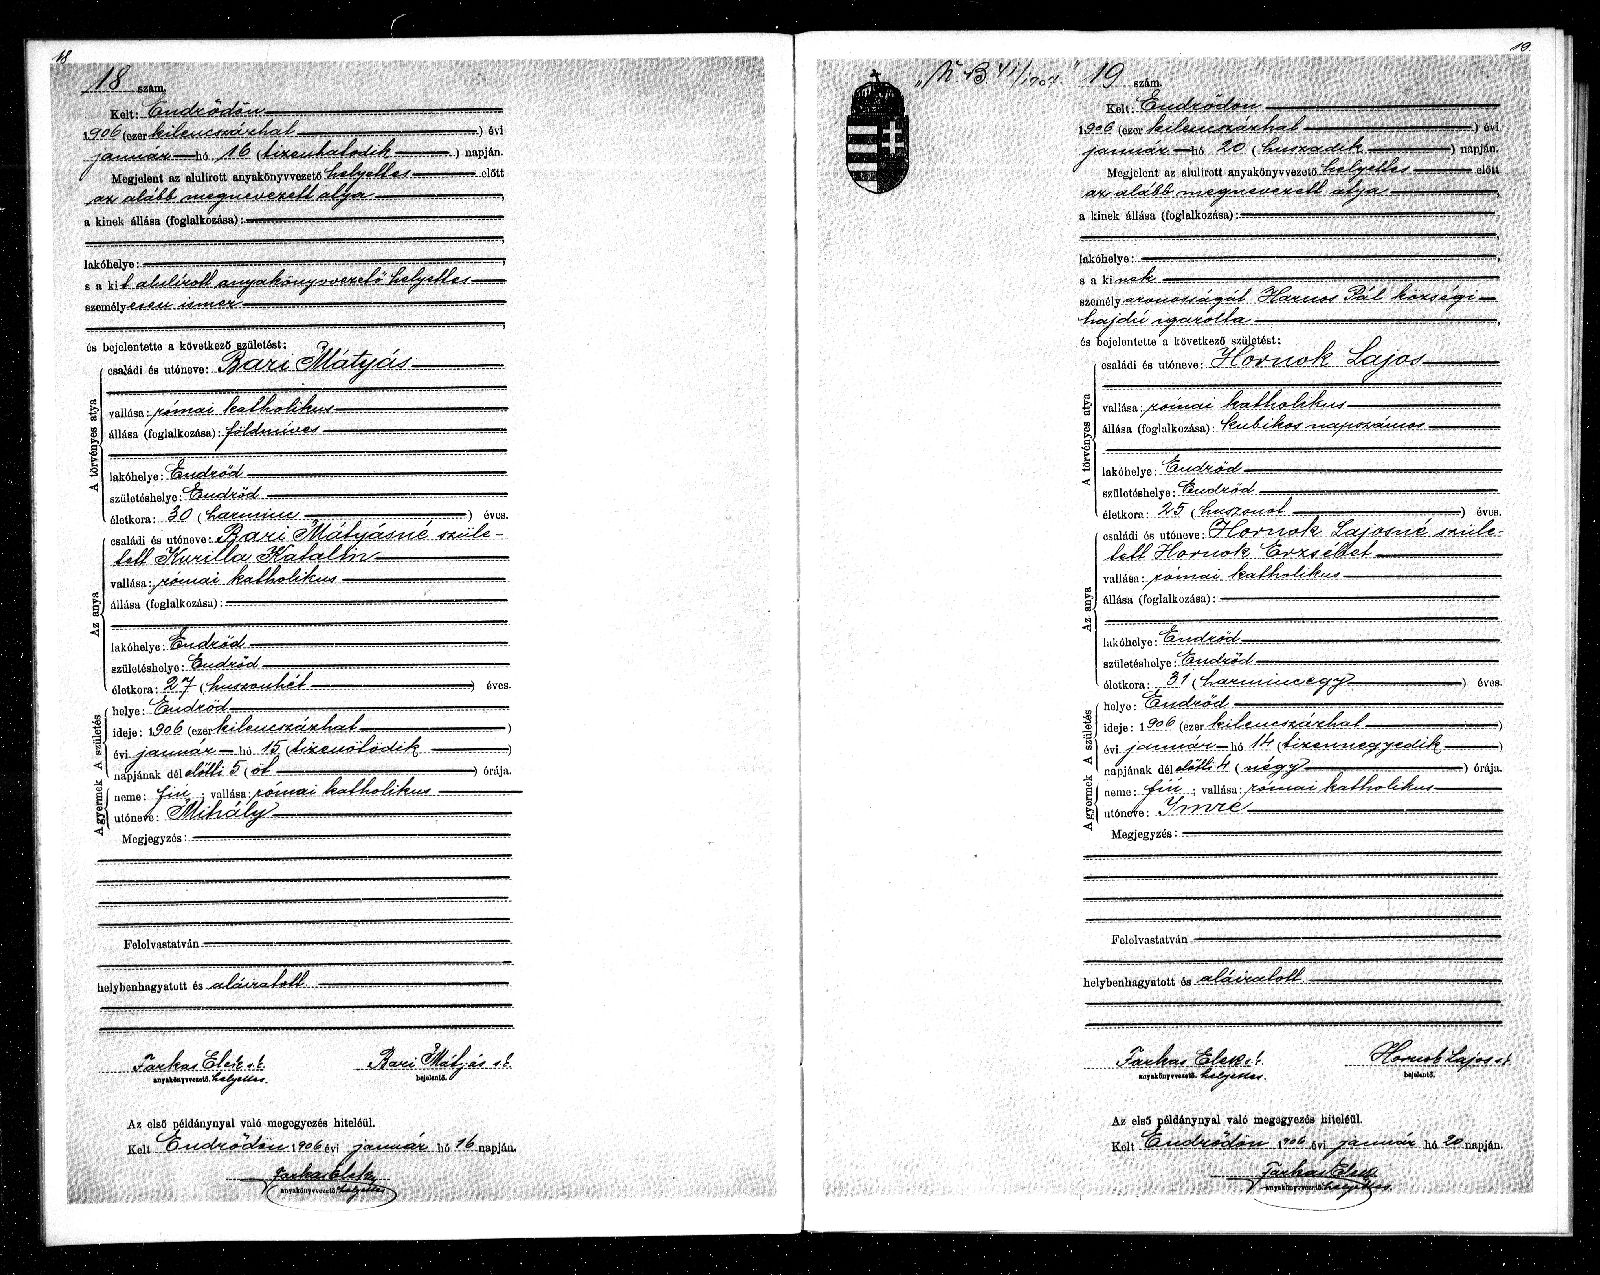 18
18 szám.
Kelt: Endrődön
1906 (ezer kilencszázhat) évi
január hó 16 (tizenhatodik) napján.
Megjelent az alulirott anyakönyvvezető helyettes előtt
az alább megnevezett atya,
a kinek állása (foglalkozása):
lakóhelye:
s a kit alulírott anyakönyvvezető helyettes
személyesen ismer
és bejelentette a következő születést:
A törvényes atya
családi és utóneve: Bari Mátyás
vallása: római katholikus
állása (foglalkozása): földmíves
lakóhelye: Endrőd
születéshelye: Endrőd
életkora: 30 (harminc) éves.
Az anya
családi és utóneve: Bari Mátyásné szüle-
tett Kurilla Katalin
vallása: római katholikus
állása (foglalkozása):
lakóhelye: Endrőd
születéshelye: Endrőd
életkora: 27 (huszonhét) éves.
A születés
helye: Endrőd
ideje: 1906 (ezer kilencszázhat)
évi január hó 15 (tizenötödik)
napjának dél előtti 5 (öt) órája.
A gyermek
neme: fiú; vallása: római katholikus
utóneve: Mihály
Megjegyzés:
Felolvastatván
helybenhagyatott és aláiratott
Farkas Elek s.k. Bari Mátjás s.k.
anyakönyvvezető. helyettes. bejelentő.
Az első példánynyal való megegyezés hiteléül.
Kelt Endrődön 1906 évi január hó 16 napján.
Farkas Elek
anyakönyvvezető helyettes
19.
19 szám.
Kelt: Endrődön
1906 (ezer kilencszázhat) évi
január hó 20 (huszadik) napján.
Megjelent az alulirott anyakönyvvezető helyettes előtt
az alább megnevezett atya,
a kinek állása (foglalkozása):
lakóhelye:
s a kinek
személyazonosságát Harnos Pál községi
hajdú igazolta
és bejelentette a következő születést:
A törvényes atya
családi és utóneve: Hornok Lajos
vallása: római katholikus
állása (foglalkozása): kubikos napszámos
lakóhelye: Endrőd
születéshelye: Endrőd
életkora: 25 (huszonöt) éves.
Az anya
családi és utóneve: Hornok Lajosné szüle-
tett Hornok Erzsébet
vallása: római katholikus
állása (foglalkozása):
lakóhelye: Endrőd
születéshelye: Endrőd
életkora: 31 (harmincegy) éves.
A születés
helye: Endrőd
ideje: 1906 (ezer kilencszázhat)
évi január hó 14 (tizennegyedik)
napjának dél előtti 4 (négy) órája.
A gyermek
neme: fiú; vallása: római katholikus
utóneve: Imre
Megjegyzés:
Felolvastatván
helybenhagyatott és aláiratott
Farkas Elek s.k. Hornok Lajos s.k.
anyakönyvvezető. helyettes. bejelentő.
Az első példánynyal való megegyezés hiteléül.
Kelt Endrődön 1906 évi január hó 20 napján.
Farkas Elek
anyakönyvvezető helyettes.